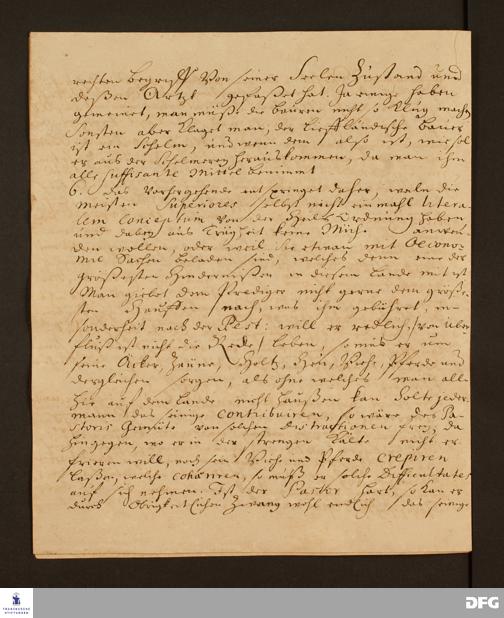 rechten begriff von seiner Seelen Zustand und
deßen Artzt gefaßet hat. Ja einige haben
gemeinet, man müße die bauren nicht so klug machen
Sonsten aber klaget man, der Liefländische bauer
ist ein Schelm, und wenn dem also ist, wie sol
er aus der Schelmerey herauskommen, da man ihm
alle suffisante Mittel benimmt
6. Das vorhergehende entspringet daher, weiln die
meisten Superiores selbst nicht einmahl litera-
lem conceptum von der Heils Ordnung haben
und dabey aus Trägheit keine Mühe anwen-
den wollen oder weil sie etwan mit Oecono-
mie Sachen beladen sind, welches denn eine der
größesten Hindernißen in diesem Lande mit ist
Man giebet dem Prediger nicht gerne dem größe-
sten Hauffen nach, was ihm gebühret in-
sonderheit nach der Pest: will er redlich /von über-
fluß ist nicht die Rede/ leben, so mus er um
seine Äcker, Zäune, Holtz, Heu, Viehe, Pferde und
dergleichen sorgen, als ohne welches man all-
hie auf dem Lande nicht haußen kan. Solte jeder-
mann das seinige contribuiren, so wäre des Pa-
storis Gemüthe von solchen distractionen frey, da
hingegen, wo er in der strengen Kälte nicht er-
frieren will, noch sein Viehe und Pferde crepiren
laßen, welche cohaeriren, so muß er solche Difficultates
auf sich nehmen. Ist der Pastor hart, so kan er
durch Obrigkeitlichen Zwang wohl endlich das seinige
FRANCKESCHE STIFTUNGEN
DFG